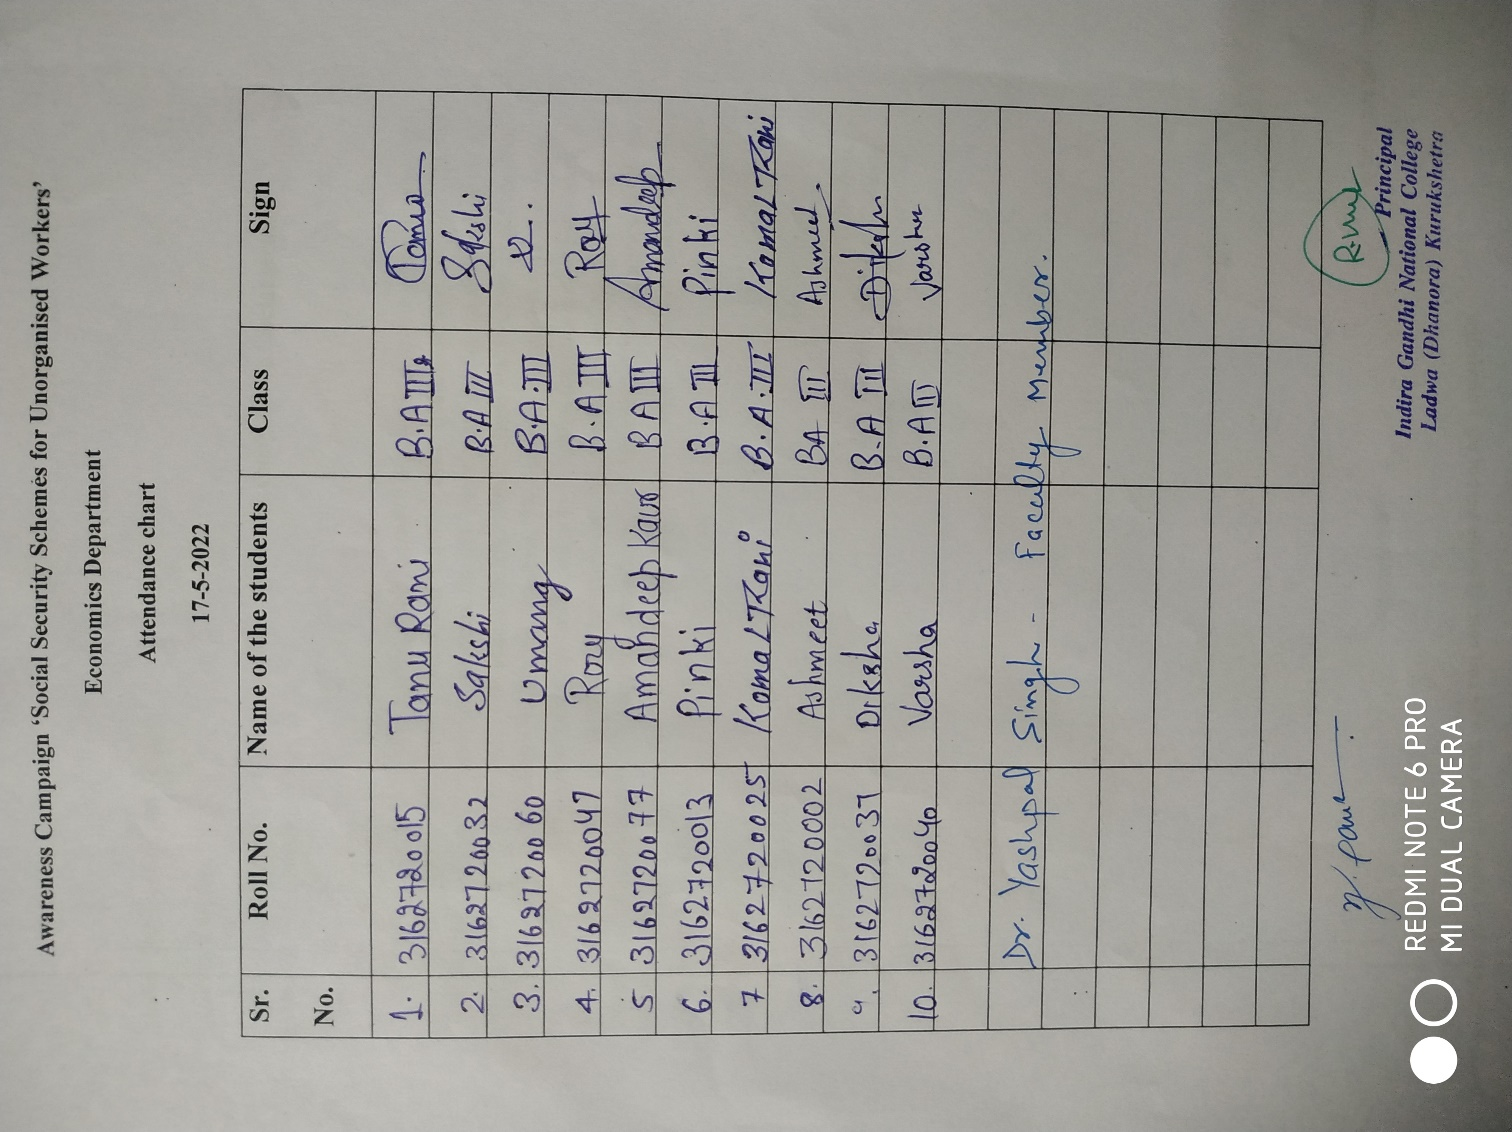 Awareness Campaign ‘Social Security Schemes for Unorganised Workers’
Economics Department
Attendance chart
17-5-2022
Sr. No. Roll No. Name of the students Class Sign
1. 3162720015 Tanu Rani B.A III Tanu
2. 3162720032 Sakshi B.A III Sakshi
3. 3162720060 Umang B.A.III
4. 3162720047 Rozy B.A III Rozy
5 3162720077 Amandeep Kaur BA III Amandeep
6. 3162720013 Pinki B.A III Pinki
7 3162720025 Komal Rani B.A.III Komal Rani
8. 3162720002 Ashmeet BA III Ashmeet
9. 3162720037 Diksha B.A III Diksha
10. 3162720040 Varsha B.A III Varsha
Dr. Yashpal Singh - Faculty Member.
Principal
Indira Gandhi National College
Ladwa (Dhanora) Kurukshetra
REDMI NOTE 6 PRO
MI DUAL CAMERA